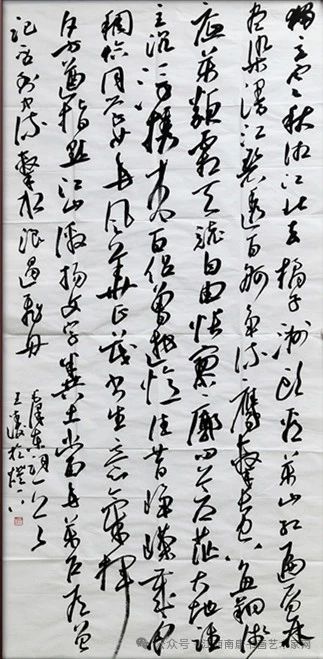 独立寒秋湘江北去橘子洲头看万山红遍层林
尽染漫江碧透百舸争流鹰击长空鱼翔浅
底万类霜天竞自由怅寥廓问苍茫大地谁
主沉浮携来百侣曾游忆往昔峥嵘岁月
稠恰同学少年风华正茂书生意气挥
斥方遒指点江山激扬文字粪土当年万户侯曾
记否到中流击水浪遏飞舟
毛泽东词
公众号 南康书画艺术家网